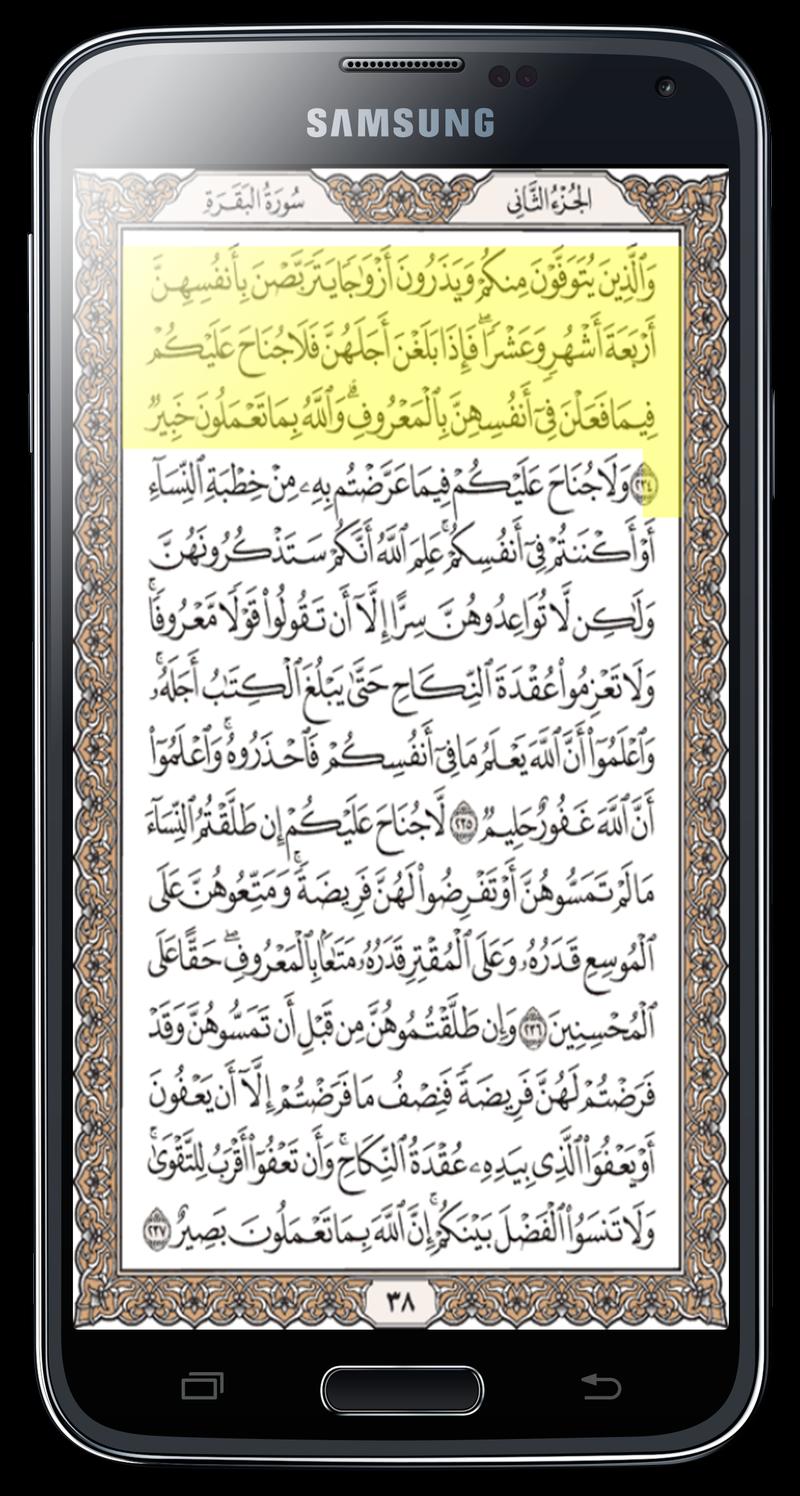 SAMSUNG
الجُزْءُ الثَّانِي
سُورَةُ البَقَرَةِ
وَٱلَّذِينَ يُتَوَفَّوْنَ مِنكُمْ وَيَذَرُونَ أَزْوَٰجًا يَتَرَبَّصْنَ بِأَنفُسِهِنَّ
أَرْبَعَةَ أَشْهُرٍ وَعَشْرًا ۖ فَإِذَا بَلَغْنَ أَجَلَهُنَّ فَلَا جُنَاحَ عَلَيْكُمْ
فِيمَا فَعَلْنَ فِىٓ أَنفُسِهِنَّ بِٱلْمَعْرُوفِ ۗ وَٱللَّهُ بِمَا تَعْمَلُونَ خَبِيرٌ
٢٣٤ وَلَا جُنَاحَ عَلَيْكُمْ فِيمَا عَرَّضْتُم بِهِۦ مِنْ خِطْبَةِ ٱلنِّسَآءِ
أَوْ أَكْنَنتُمْ فِىٓ أَنفُسِكُمْ ۚ عَلِمَ ٱللَّهُ أَنَّكُمْ سَتَذْكُرُونَهُنَّ
وَلَٰكِن لَّا تُوَاعِدُوهُنَّ سِرًّا إِلَّآ أَن تَقُولُوا۟ قَوْلًا مَّعْرُوفًا ۚ
وَلَا تَعْزِمُوا۟ عُقْدَةَ ٱلنِّكَاحِ حَتَّىٰ يَبْلُغَ ٱلْكِتَٰبُ أَجَلَهُۥ ۚ
وَٱعْلَمُوٓا۟ أَنَّ ٱللَّهَ يَعْلَمُ مَا فِىٓ أَنفُسِكُمْ فَٱحْذَرُوهُ ۚ وَٱعْلَمُوٓا۟
أَنَّ ٱللَّهَ غَفُورٌ حَلِيمٌ ٢٣٥ لَّا جُنَاحَ عَلَيْكُمْ إِن طَلَّقْتُمُ ٱلنِّسَآءَ
مَا لَمْ تَمَسُّوهُنَّ أَوْ تَفْرِضُوا۟ لَهُنَّ فَرِيضَةً ۚ وَمَتِّعُوهُنَّ عَلَى
ٱلْمُوسِعِ قَدَرُهُۥ وَعَلَى ٱلْمُقْتِرِ قَدَرُهُۥ مَتَٰعًۢا بِٱلْمَعْرُوفِ ۖ حَقًّا عَلَى
ٱلْمُحْسِنِينَ ٢٣٦ وَإِن طَلَّقْتُمُوهُنَّ مِن قَبْلِ أَن تَمَسُّوهُنَّ وَقَدْ
فَرَضْتُمْ لَهُنَّ فَرِيضَةً فَنِصْفُ مَا فَرَضْتُمْ إِلَّآ أَن يَعْفُونَ
أَوْ يَعْفُوَا۟ ٱلَّذِى بِيَدِهِۦ عُقْدَةُ ٱلنِّكَاحِ ۚ وَأَن تَعْفُوٓا۟ أَقْرَبُ لِلتَّقْوَىٰ ۚ
وَلَا تَنسَوُا۟ ٱلْفَضْلَ بَيْنَكُمْ ۚ إِنَّ ٱللَّهَ بِمَا تَعْمَلُونَ بَصِيرٌ ٢٣٧
٣٨